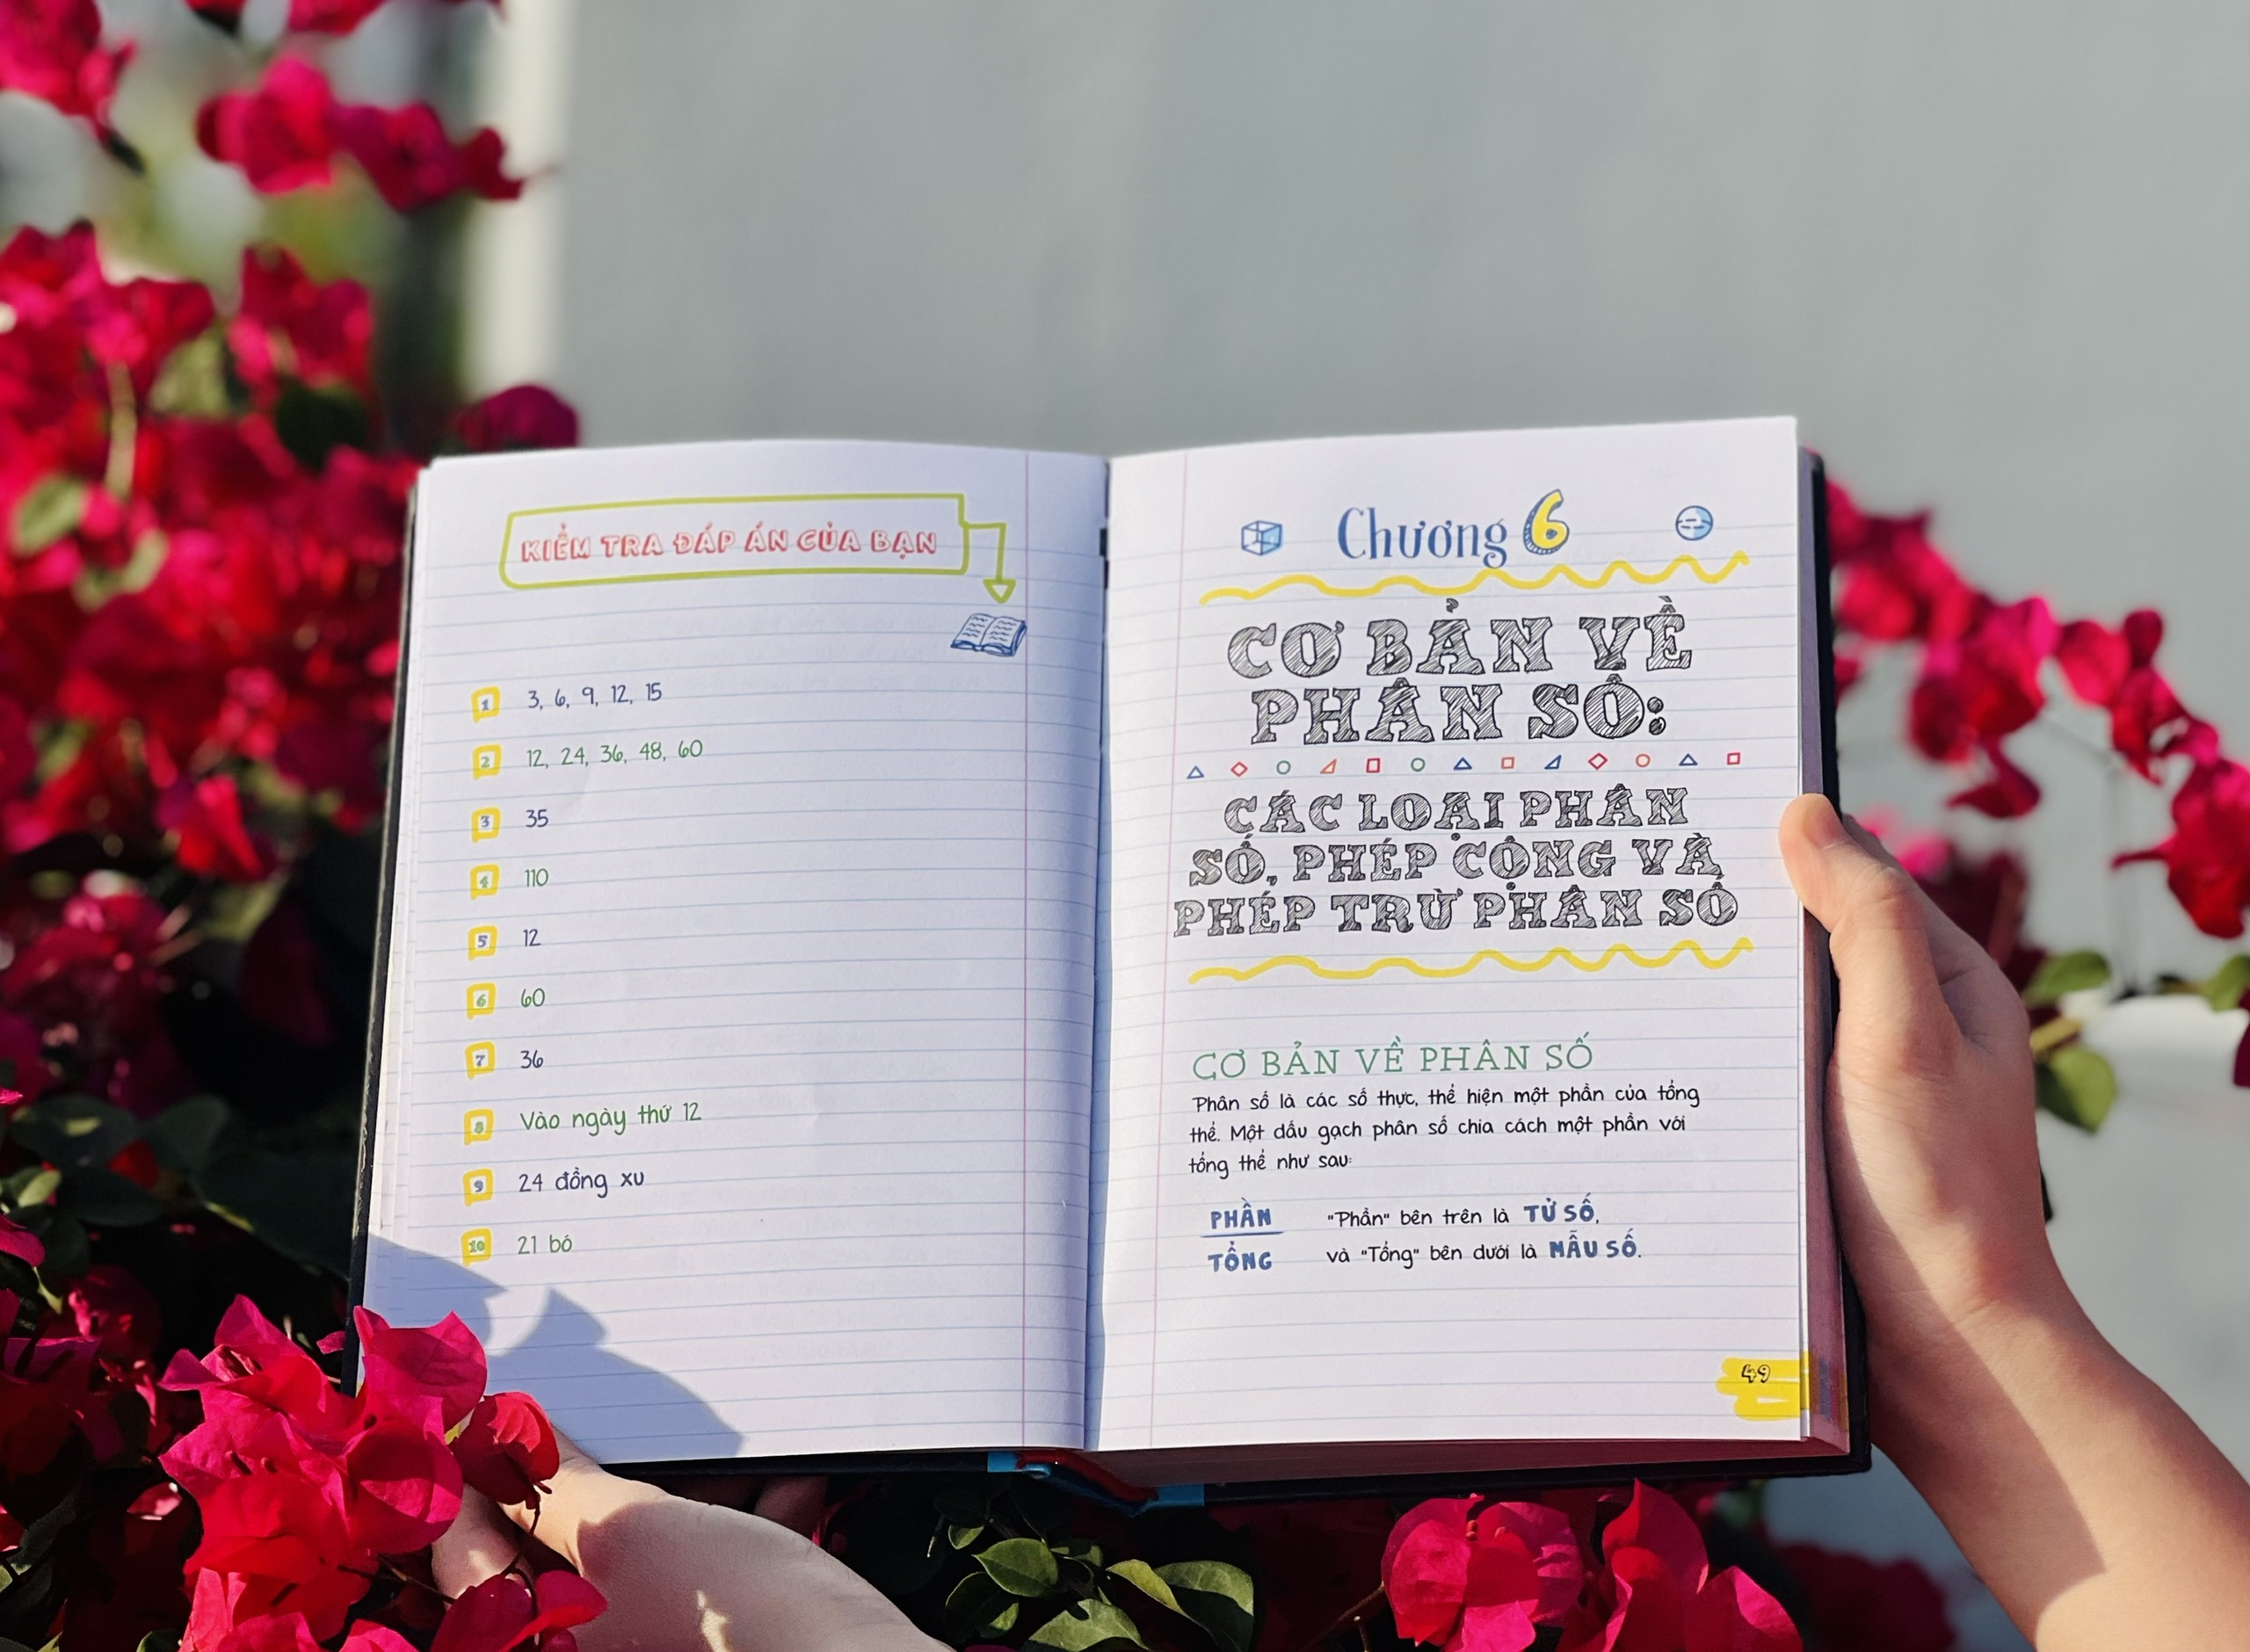 KIỂM TRA ĐÁP ÁN CỦA BẠN
1 3, 6, 9, 12, 15
2 12, 24, 36, 48, 60
3 35
4 110
5 12
6 60
7 36
8 Vào ngày thứ 12
9 24 đồng xu
10 21 bó
Chương 6
CƠ BẢN VỀ
PHÂN SỐ:
CÁC LOẠI PHÂN
SỐ, PHÉP CỘNG VÀ
PHÉP TRỪ PHÂN SỐ
CƠ BẢN VỀ PHÂN SỐ
Phân số là các số thực, thể hiện một phần của tổng
thể. Một dấu gạch phân số chia cách một phần với
tổng thể như sau:
PHẦN
TỔNG
"Phần" bên trên là TỬ SỐ,
và "Tổng" bên dưới là MẪU SỐ.
49